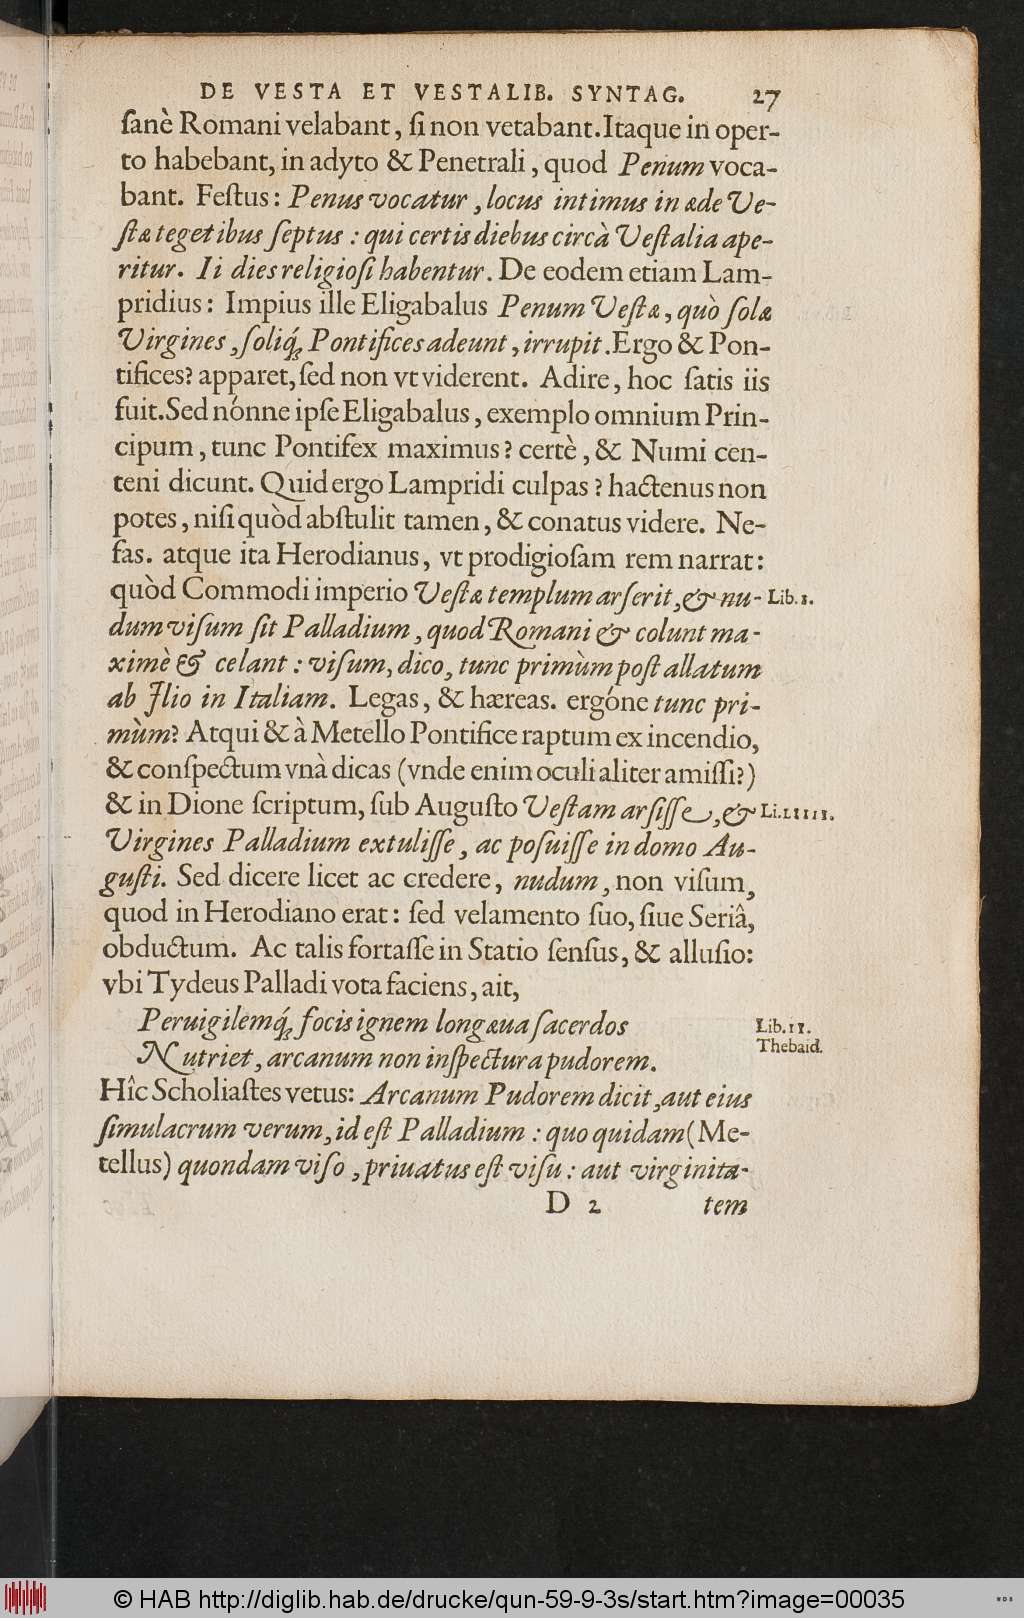 DE VESTA ET VESTALIB. SYNTAG. 27
ſanè Romani velabant, ſi non vetabant. Itaque in oper-
to habebant, in adyto & Penetrali, quod Penum voca-
bant. Feſtus: Penus vocatur, locus intimus in æde Ve-
ſtæ tegetibus ſeptus: qui certis diebus circà Veſtalia ape-
ritur. Ii dies religioſi habentur. De eodem etiam Lam-
pridius: Impius ille Eligabalus Penum Veſtæ, quò ſolæ
Virgines, ſoliq́; Pontifices adeunt, irrupit. Ergo & Pon-
tifices? apparet, ſed non vt viderent. Adire, hoc ſatis iis
fuit. Sed nónne ipſe Eligabalus, exemplo omnium Prin-
cipum, tunc Pontifex maximus? certè, & Numi cen-
teni dicunt. Quid ergo Lampridi culpas? hactenus non
potes, niſi quòd abſtulit tamen, & conatus videre. Ne-
fas. atque ita Herodianus, vt prodigioſam rem narrat:
quòd Commodi imperio Veſtæ templum arſerit, & nu- Lib. 1.
dum viſum ſit Palladium, quod Romani & colunt ma-
ximè & celant: viſum, dico, tunc primùm poſt allatum
ab Ilio in Italiam. Legas, & hæreas. ergóne tunc pri-
mùm? Atqui & à Metello Pontifice raptum ex incendio,
& conſpectum vnà dicas (vnde enim oculi aliter amiſſi?)
& in Dione ſcriptum, ſub Auguſto Veſtam arſiſſe, & Li. LIIII.
Virgines Palladium extuliſſe, ac poſuiſſe in domo Au-
guſti. Sed dicere licet ac credere, nudum, non viſum,
quod in Herodiano erat: ſed velamento ſuo, ſiue Seriâ,
obductum. Ac talis fortaſſe in Statio ſenſus, & alluſio:
vbi Tydeus Palladi vota faciens, ait,
Peruigilemq́; focis ignem longæua ſacerdos Lib. 11.
Nutriet, arcanum non inſpectura pudorem. Thebaid.
Hîc Scholiaſtes vetus: Arcanum Pudorem dicit, aut eius
ſimulacrum verum, id eſt Palladium: quo quidam (Me-
tellus) quondam viſo, priuatus eſt viſu: aut virginita-
D 2 tem
© HAB http://diglib.hab.de/drucke/qun-59-9-3s/start.htm?image=00035